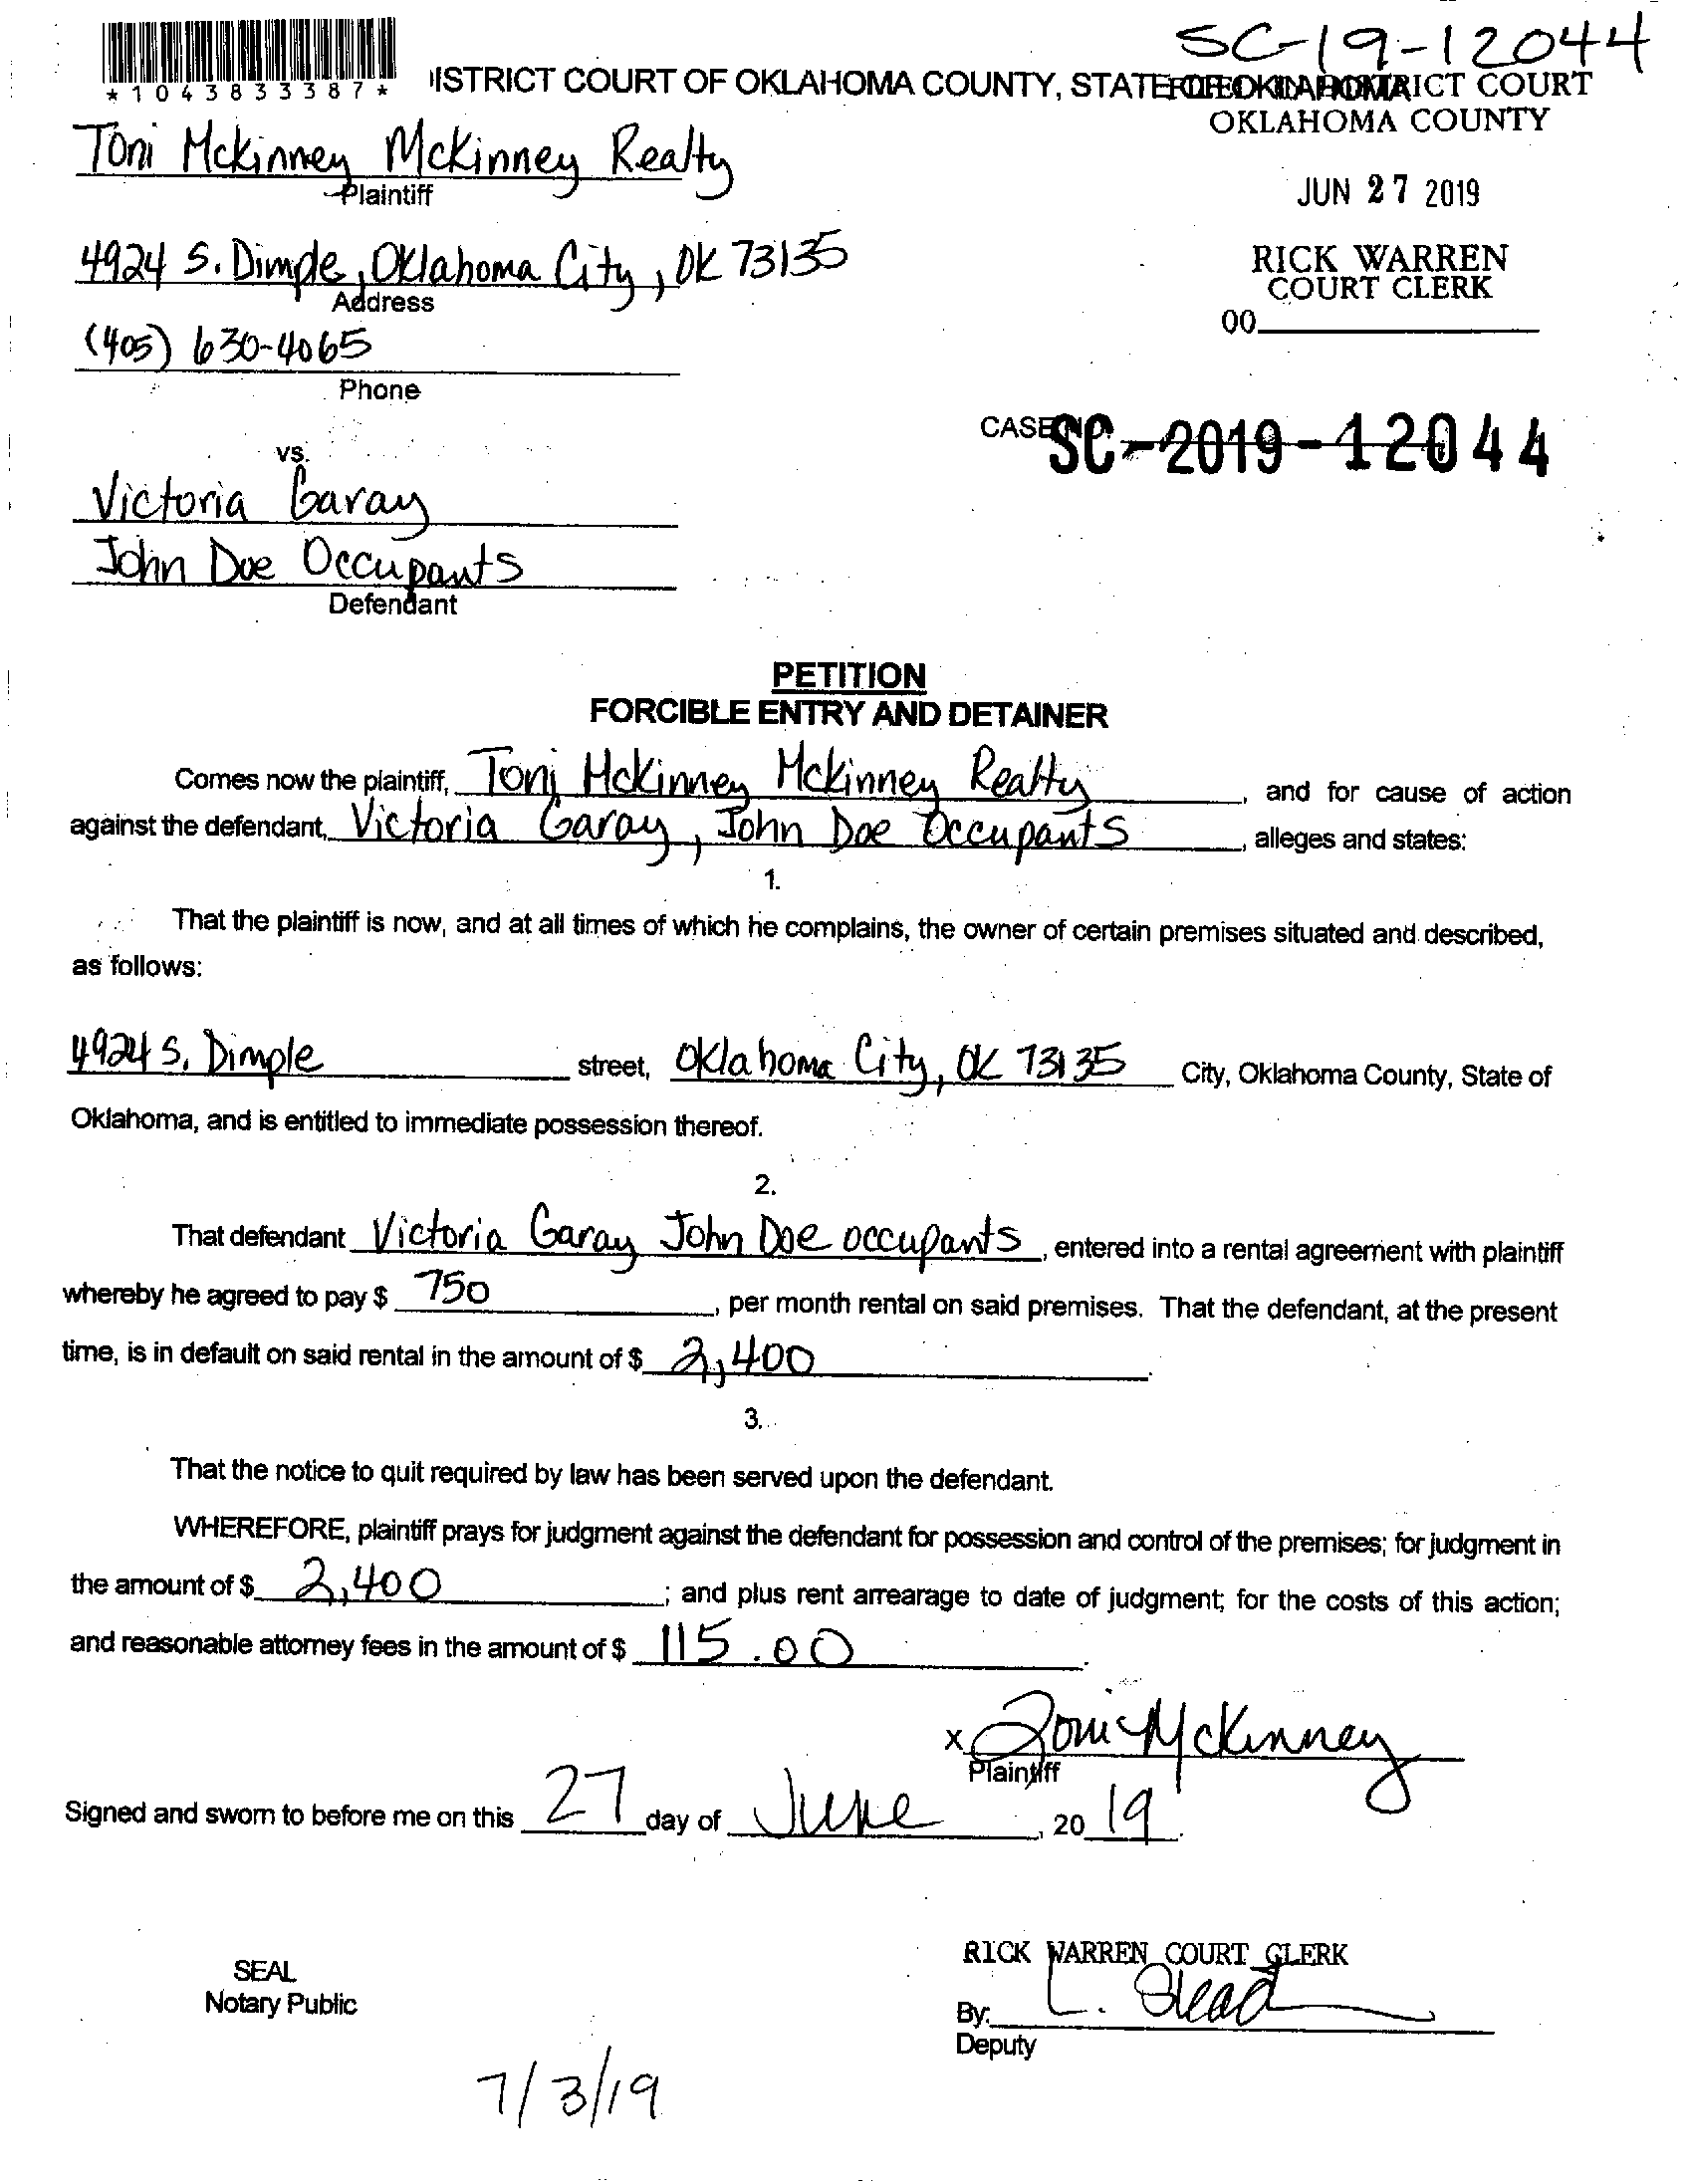 SC-19-12044
*1043833387*
ISTRICT COURT OF OKLAHOMA COUNTY, STATE OF OKLAHOMA
FILED IN DISTRICT COURT
OKLAHOMA COUNTY
Toni McKinney McKinney Realty
Plaintiff
JUN 27 2019
4924 S. Dimple, Oklahoma City, OK 73135
Address
RICK WARREN
COURT CLERK
00
(405) 630-4065
Phone
CASE NO. SC-2019-12044
vs.
Victoria Garay
John Doe Occupants
Defendant
PETITION
FORCIBLE ENTRY AND DETAINER
Comes now the plaintiff, Toni McKinney McKinney Realty, and for cause of action
against the defendant, Victoria Garay, John Doe Occupants, alleges and states:
1.
That the plaintiff is now, and at all times of which he complains, the owner of certain premises situated and described,
as follows:
4924 S. Dimple street, Oklahoma City, OK 73135 City, Oklahoma County, State of
Oklahoma, and is entitled to immediate possession thereof.
2.
That defendant Victoria Garay John Doe occupants, entered into a rental agreement with plaintiff
whereby he agreed to pay $ 750, per month rental on said premises. That the defendant, at the present
time, is in default on said rental in the amount of $ 2,400.
3.
That the notice to quit required by law has been served upon the defendant.
WHEREFORE, plaintiff prays for judgment against the defendant for possession and control of the premises; for judgment in
the amount of $ 2,400; and plus rent arrearage to date of judgment; for the costs of this action;
and reasonable attorney fees in the amount of $ 115.00.
x Toni McKinney
Plaintiff
Signed and sworn to before me on this 27 day of June, 2019.
RICK WARREN COURT CLERK
SEAL
Notary Public
By: L. Stead
Deputy
7/3/19